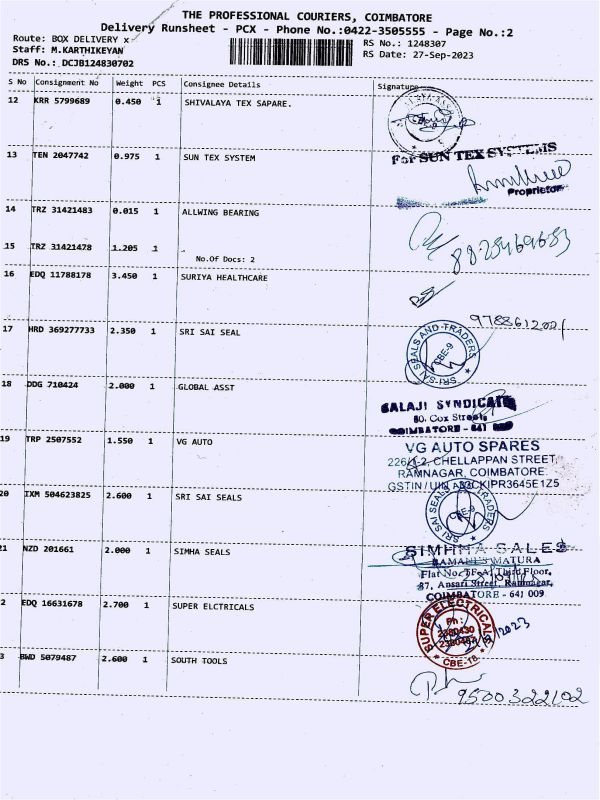 THE PROFESSIONAL COURIERS, COIMBATORE
Delivery Runsheet - PCX - Phone No.:0422-3505555 - Page No.:2
Route: BOX DELIVERY x
RS No.: 1248307
Staff: M.KARTHIKEYAN
RS Date: 27-Sep-2023
DRS No.: DCJB124830702
S No Consignment No Weight PCS Consignee Details Signature
12 KRR 5799689 0.450 1 SHIVALAYA TEX SAPARE.
13 TEN 2047742 0.975 1 SUN TEX SYSTEM
For SUN TEX SYSTEMS
Proprietor
14 TRZ 31421483 0.015 1 ALLWING BEARING
15 TRZ 31421478 1.205 1
No.Of Docs: 2
8825469653
16 EDQ 11788178 3.450 1 SURIYA HEALTHCARE
17 HRD 369277733 2.350 1 SRI SAI SEAL
SRI-SAI SEALS AND TRADERS
CBE-9
18 DDG 710424 2.000 1 GLOBAL ASST
BALAJI SYNDICATE
80. Cox Street,
COIMBATORE - 641
19 TRP 2507552 1.550 1 VG AUTO
VG AUTO SPARES
CHELLAPPAN STREET,
RAMNAGAR, COIMBATORE
GSTIN/UIN
20 IXM 504623825 2.600 1 SRI SAI SEALS
SRI SAI SEALS TRADERS
CBE-9
21 NZD 201661 2.000 1 SIMHA SEALS
SIMHHA SALES
Third Floor,
87, Ansari Street, Ramnagar,
COIMBATORE - 641 009
2 EDQ 16631678 2.700 1 SUPER ELCTRICALS
SUPER ELECTRICALS
Ph :
2380430
CBE-18
3 BWD 5079487 2.600 1 SOUTH TOOLS
9500322102